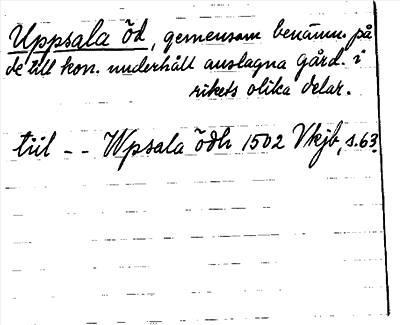 Uppsala öd, gemensam benämn. på
de till kon. underhåll anslagna gård. i
rikets olika delar.
tiil - - Wpsala ödh 1502 Vkjb, s.63.